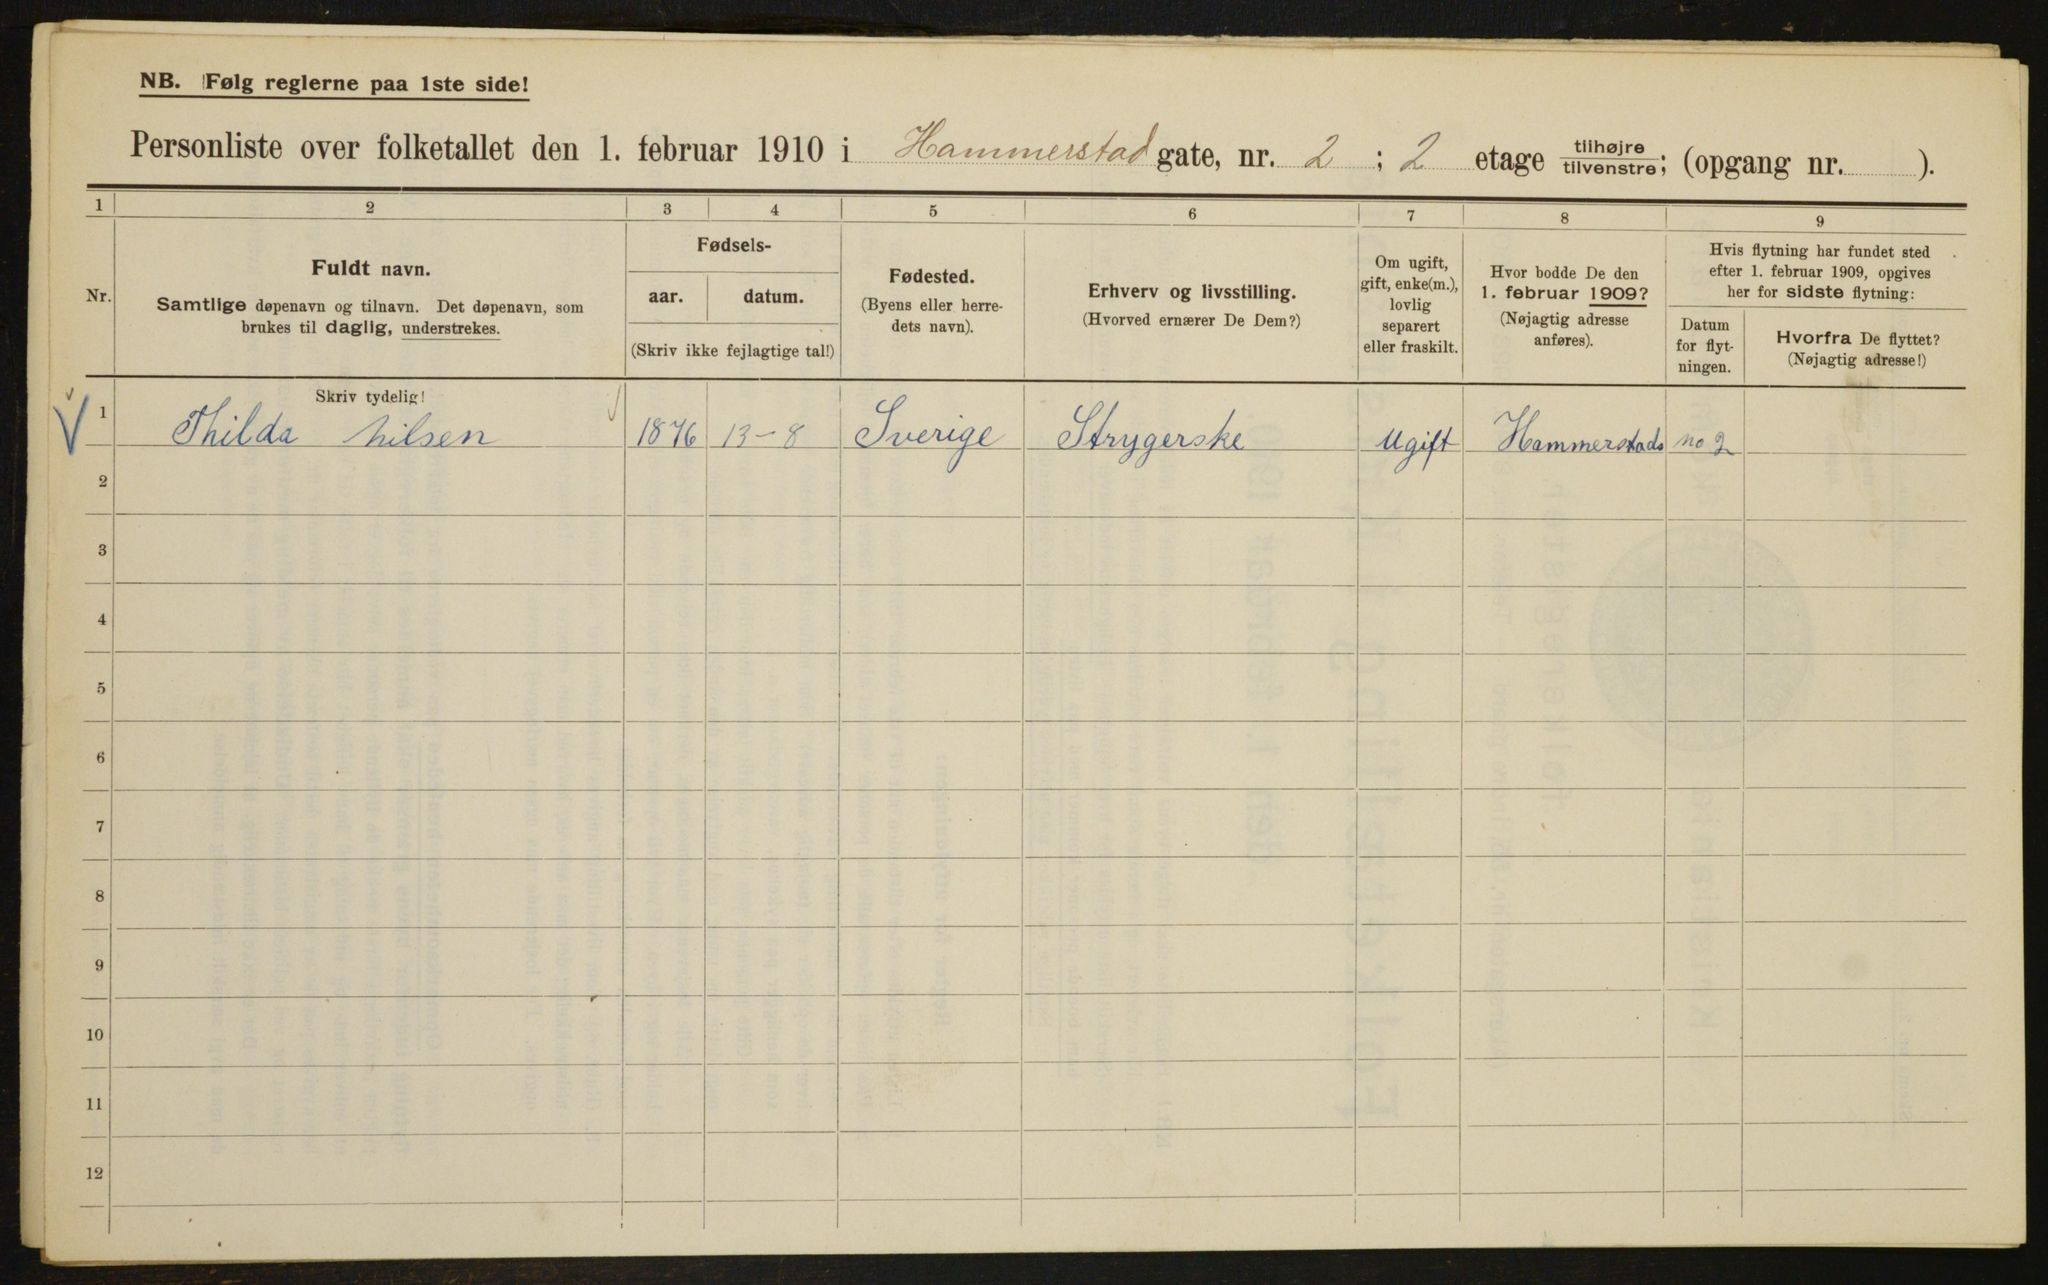 NB. Følg reglerne paa 1ste side!
Personliste over folketallet den 1. februar 1910 i Hammerstad gate, nr. 2 ; 2 etage tilhøjre tilvenstre; (opgang nr. ).
1 2 3 4 5 6 7 8 9
Nr.
Fuldt navn.
Samtlige døpenavn og tilnavn. Det døpenavn, som
brukes til daglig, understrekes.
Fødsels-
aar. datum.
(Skriv ikke fejlagtige tal!)
Fødested.
(Byens eller herre-
dets navn).
Erhverv og livsstilling.
(Hvorved ernærer De Dem?)
Om ugift,
gift, enke(m.),
lovlig
separert
eller fraskilt.
Hvor bodde De den
1. februar 1909?
(Nøjagtig adresse
anføres).
Hvis flytning har fundet sted
efter 1. februar 1909, opgives
her for sidste flytning:
Datum
for flyt-
ningen.
Hvorfra De flyttet?
(Nøjagtig adresse!)
Skriv tydelig!
1 Thilda Nilsen 1876 13-8 Sverige Strygerske Ugift Hammerstads no 2
2
3
4
5
6
7
8
9
10
11
12